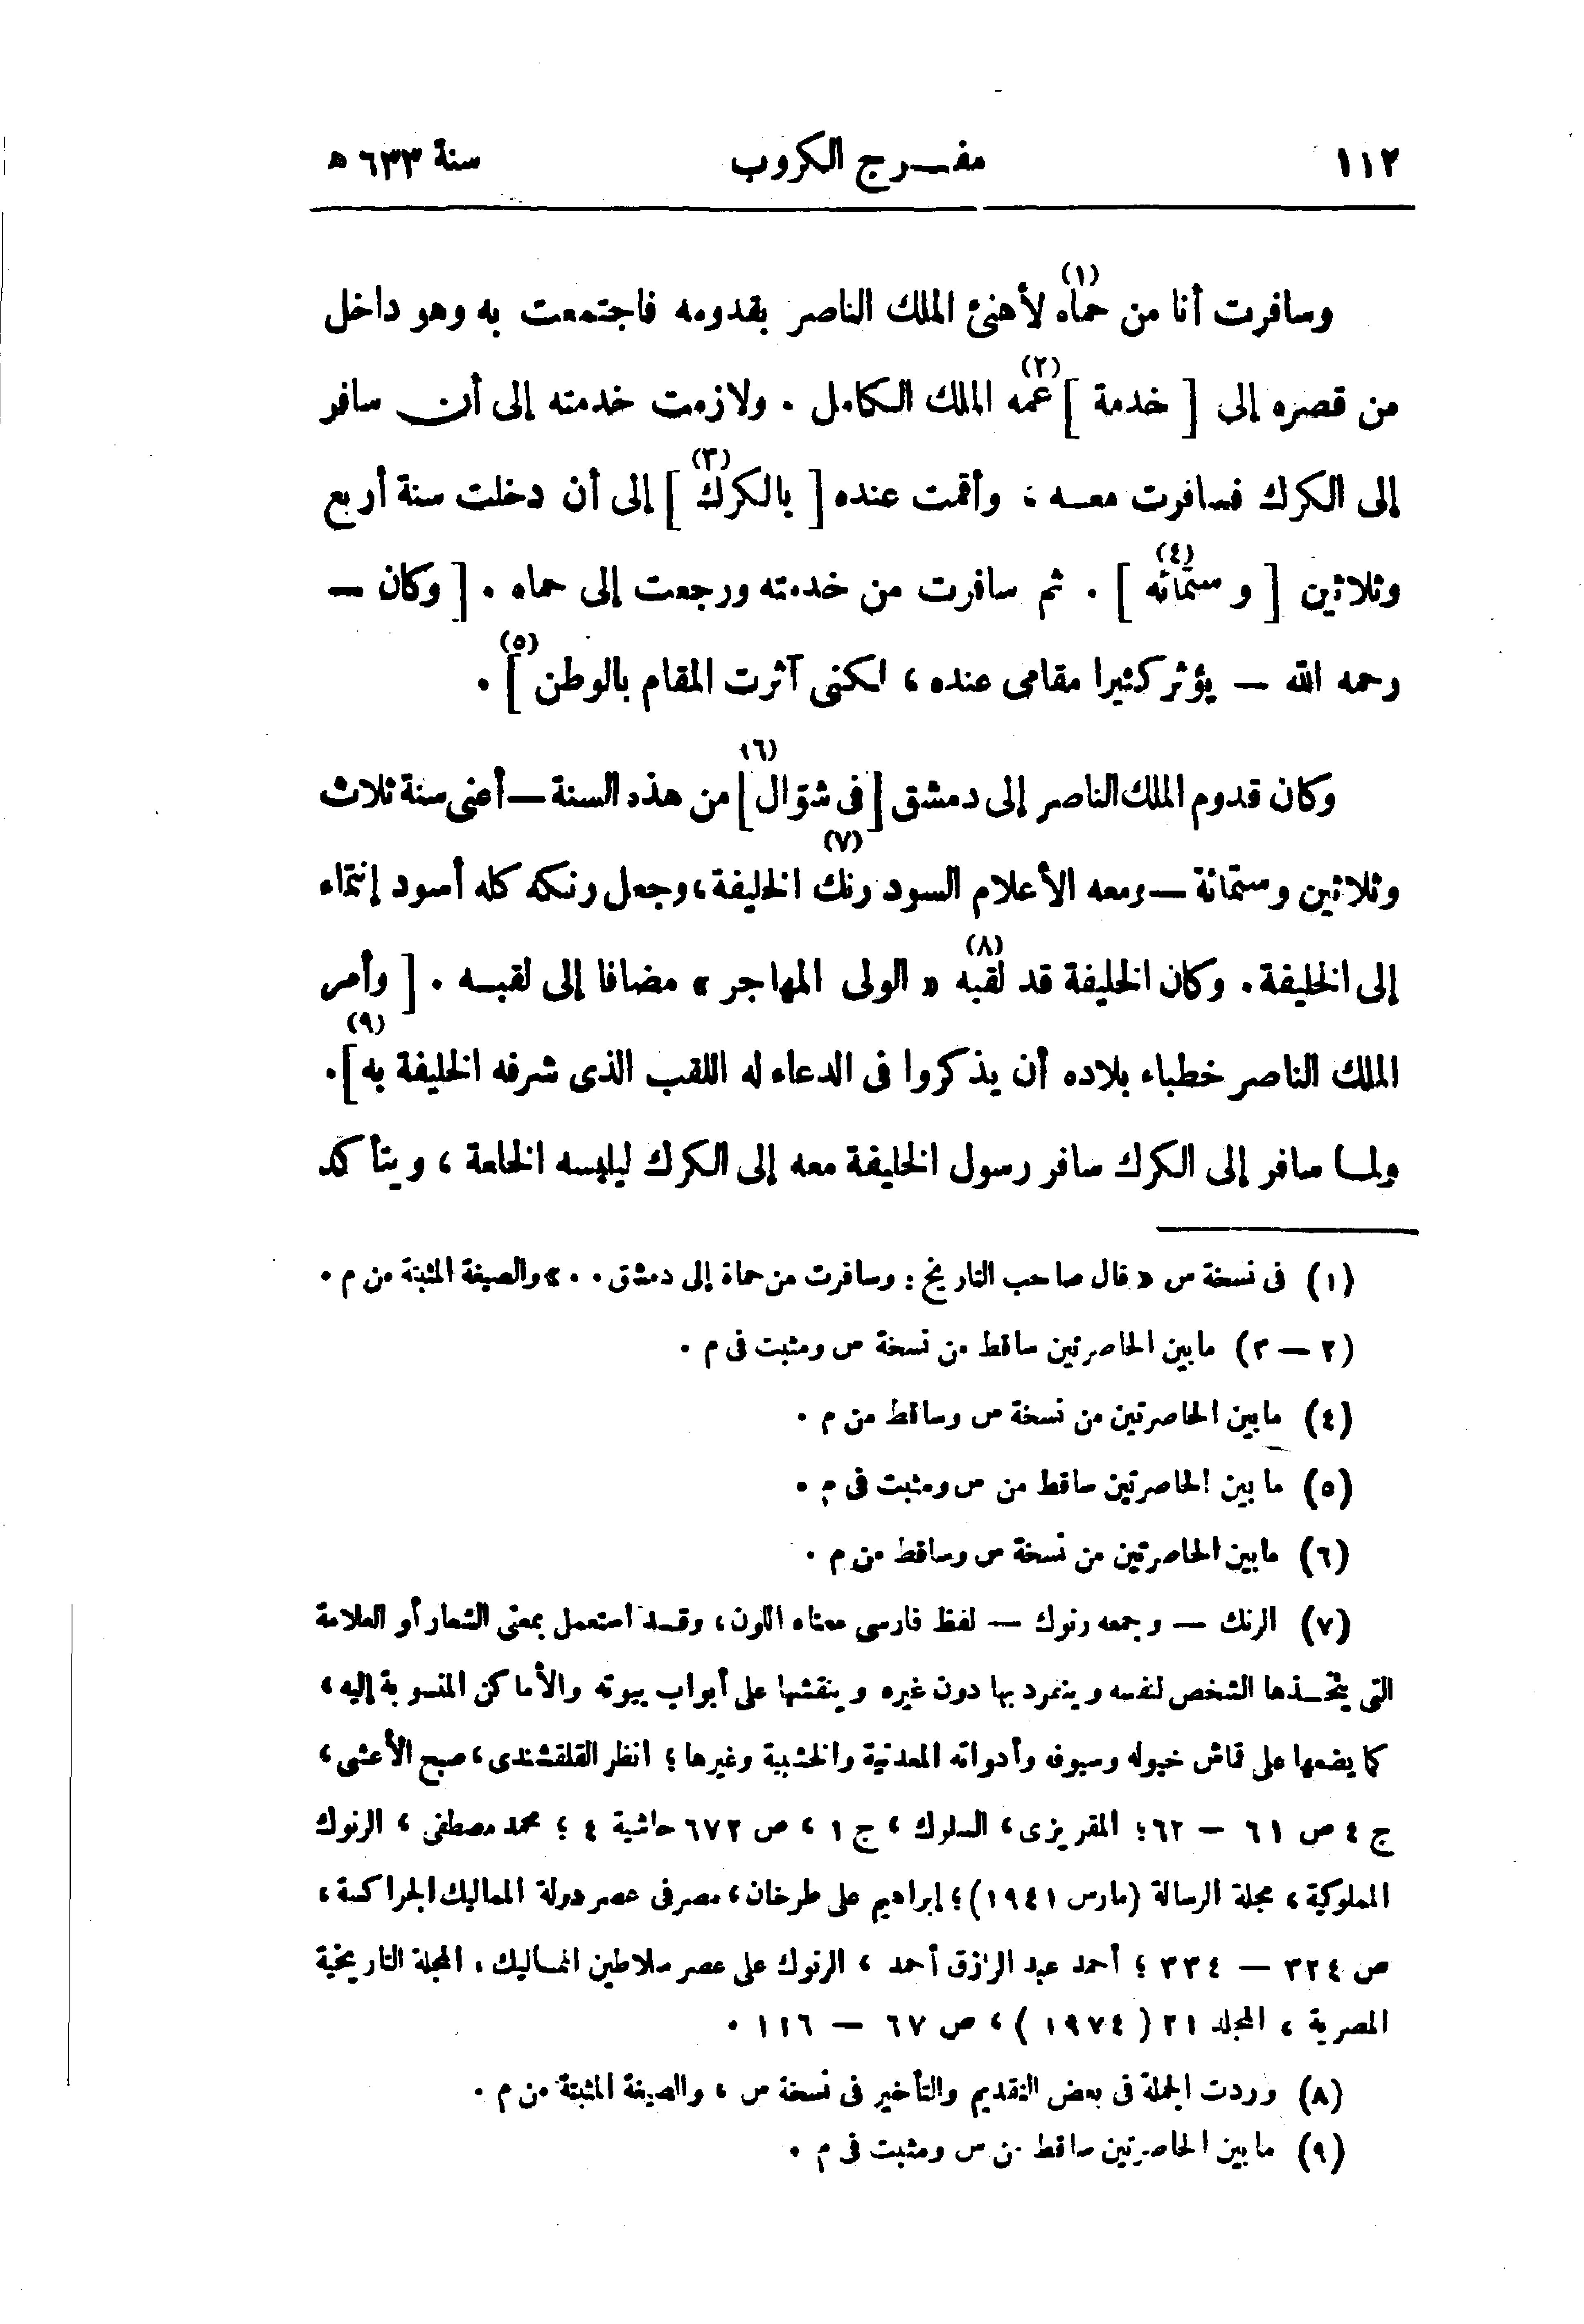 ١١٢ مفرج الكروب سنة ٦٣٣ هـ
وسافرت أنا من حماه (١) لأهنئ الملك الناصر بقدومه فاجتمعت به وهو داخل
من قصره إلى [ خدمة ] عمه (٢) الملك الكامل . ولازمت خدمته إلى أن سافر
إلى الكرك فسافرت معه ؛ وأقمت عنده [ بالكرك (٣) ] إلى أن دخلت سنة أربع
وثلاثين [ وستمائه (٤) ] . ثم سافرت من خدمته ورجعت إلى حماه . [ وكان —
رحمه الله — يؤثر كثيرا مقامى عنده ، لكنى آثرت المقام بالوطن (٥) ] .
وكان قدوم الملك الناصر إلى دمشق [ فى شوّال (٦) ] من هذه السنة — أعنى سنة ثلاث
وثلاثين وستمائة — ومعه الأعلام السود رنك (٧) الخليفة ، وجعل رنكه كله أسود إنتماء
إلى الخليفة . وكان الخليفة قد لقبه (٨) « الولى المهاجر » مضافا إلى لقبه . [ وأمر
الملك الناصر خطباء بلاده أن يذكروا فى الدعاء له اللقب الذى شرفه الخليفة به (٩) ] .
ولما سافر إلى الكرك سافر رسول الخليفة معه إلى الكرك ليلبسه الخلعة ، ويتأكد
(١) فى نسخة س « قال صاحب التاريخ : وسافرت من حماة إلى دمشق . . » والصيغة المثبتة من م .
(٢ — ٣) ما بين الحاصرتين ساقط من نسخة س ومثبت فى م .
(٤) ما بين الحاصرتين من نسخة س وساقط من م .
(٥) ما بين الحاصرتين ساقط من س ومثبت فى م .
(٦) ما بين الحاصرتين من نسخة س وساقط من م .
(٧) الرنك — وجمعه رنوك — لفظ فارسى معناه اللون ، وقد استعمل بمعنى الشعار أو العلامة
التى يتخذها الشخص لنفسه وينفرد بها دون غيره وينقشها على أبواب بيوته والأماكن المنسوبة إليه ،
كما يضعها على قماش خيوله وسيوفه وأدواته المعدنية والخشبية وغيرها ؛ انظر القلقشندى ، صبح الأعشى ،
ج ٤ ص ٦١ — ٦٢ ؛ المقريزى ، السلوك ، ج ١ ، ص ٦٧٢ حاشية ٤ ؛ محمد مصطفى ، الرنوك
المملوكية ، مجلة الرسالة (مارس ١٩٤١) ؛ إبراهيم على طرخان ، مصر فى عصر دولة المماليك الجراكسة ،
ص ٣٢٤ — ٣٣٤ ؛ أحمد عبد الرازق أحمد ، الرنوك على عصر سلاطين المماليك ، المجلة التاريخية
المصرية ، المجلد ٢١ ( ١٩٧٤ ) ، ص ٦٧ — ١١٦ .
(٨) وردت الجملة فى بعض التقديم والتأخير فى نسخة س ، والصيغة المثبتة من م .
(٩) ما بين الحاصرتين ساقط من س ومثبت فى م .